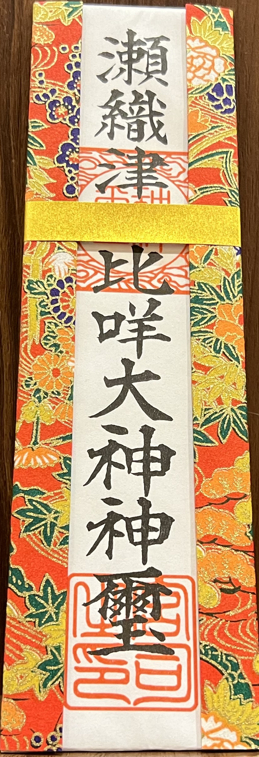 瀬織津比咩大神神璽